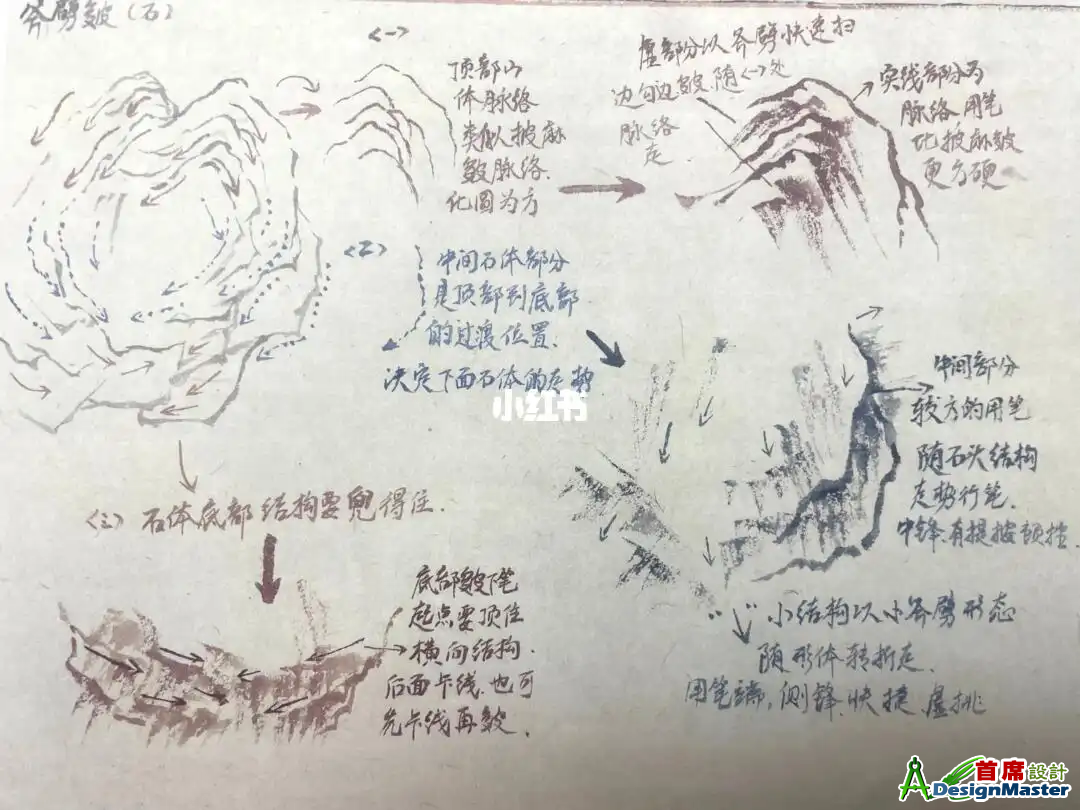 斧劈皴(石)
<一>
顶部山
体脉络
类似披麻
皴脉络.
化圆为方
虚部分以斧劈快速扫
边勾边皴.随<一>处
脉络
走
实线部分为
脉络.用笔
比披麻皴
更方硬
<二>
中间石体部分
是顶部到底部
的过渡位置.
决定下面石体的走势
小红书
中间部分
较方的用笔
随石头结构
走势行笔.
中锋.有提按顿挫.
<三>石体底部结构要兜得住.
底部皴下笔
起点要顶住
横向结构.
后面卡线.也可
先卡线再皴.
小结构以小斧劈形态
随形体转折走.
用笔端,侧锋.快捷.虚挑
首席設計
DesignMaster